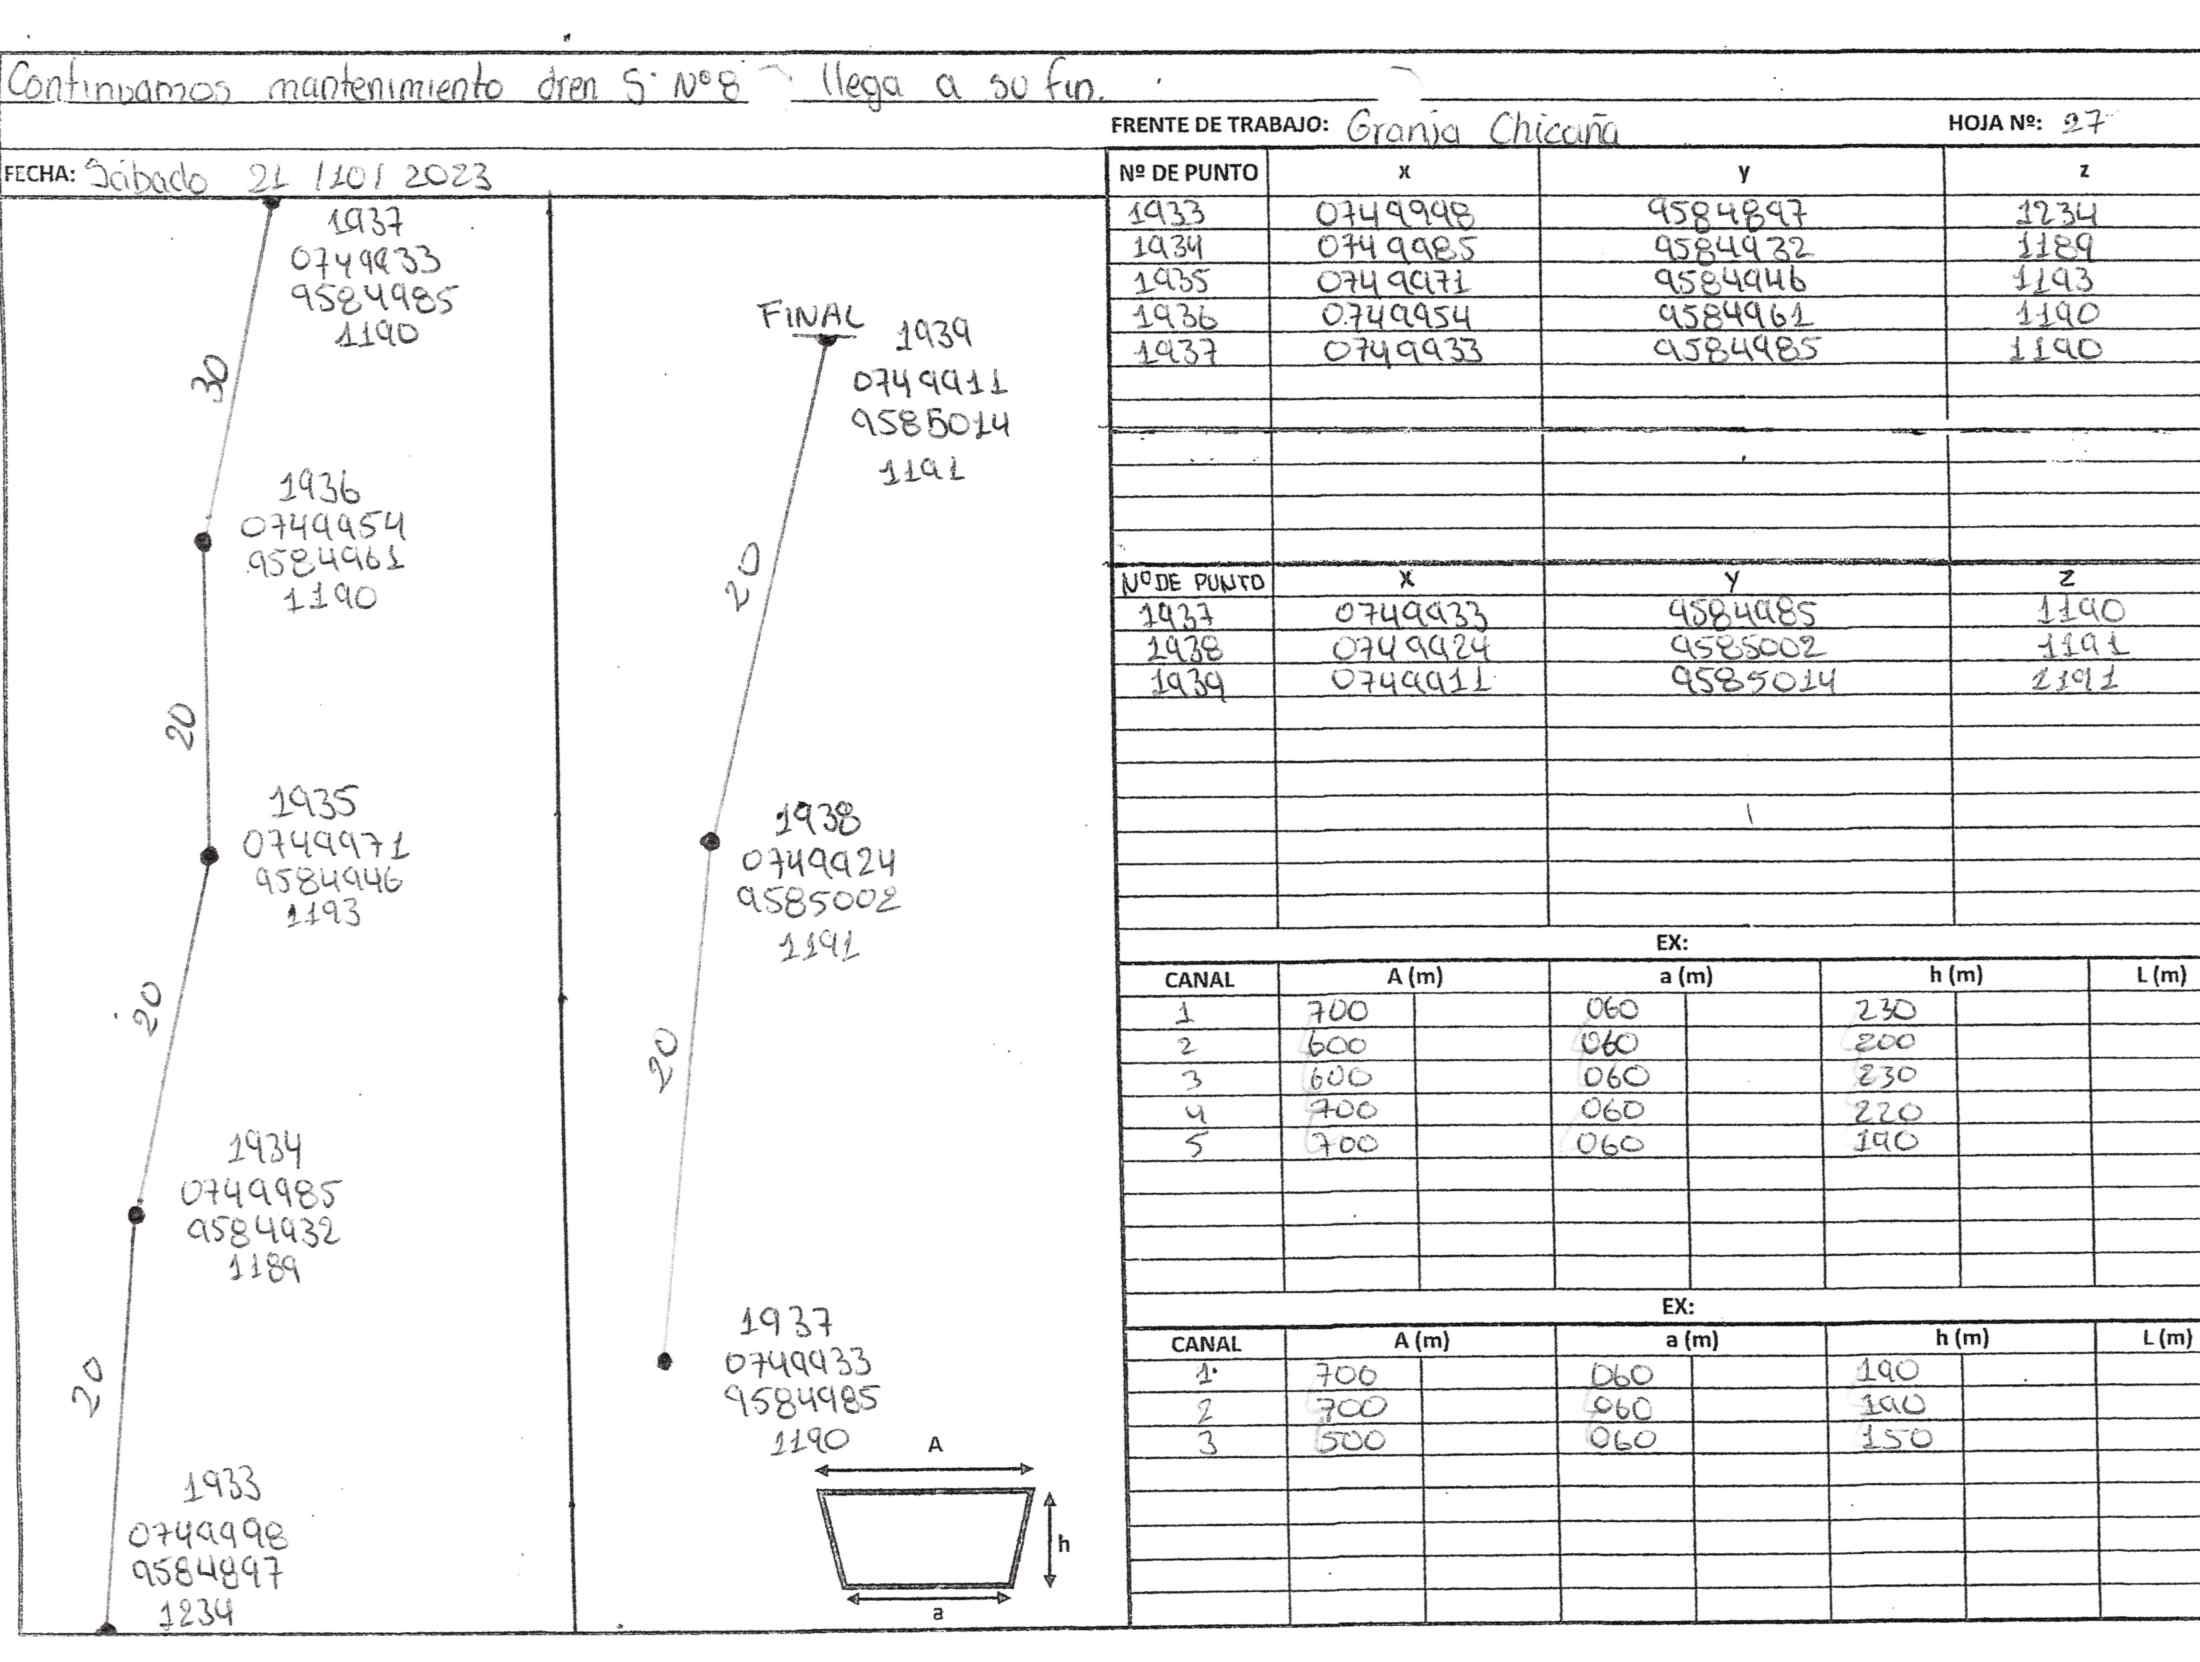 Continuamos mantenimiento dren S. Nº8 llega a su fin.
FRENTE DE TRABAJO: Granja Chicaña HOJA Nº: 27
FECHA: Sábado 21 /10/ 2023
1937
0749933
9584985
1190
30
1936
0749954
9584961
1190
20
1935
0749971
9584946
1193
20
1934
0749985
9584932
1189
20
1933
0749998
9584897
1234
FINAL
1939
0749911
9585014
1191
20
1938
0749924
9585002
1191
20
1937
0749933
9584985
1190
A
h
a
Nº DE PUNTO x y z
1933 0749998 9584897 1234
1934 0749985 9584932 1189
1935 0749971 9584946 1193
1936 0749954 9584961 1190
1937 0749933 9584985 1190
Nº DE PUNTO X Y Z
1937 0749933 9584985 1190
1938 0749924 9585002 1191
1939 0749911 9585014 1191
EX:
CANAL A (m) a (m) h (m) L (m)
1 700 060 230
2 600 060 200
3 600 060 230
4 700 060 220
5 700 060 190
EX:
CANAL A (m) a (m) h (m) L (m)
1 700 060 190
2 700 060 190
3 500 060 150